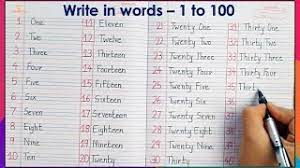 Write in words – 1 to 100
1 One
2 Two
3 Three
4 Four
5 Five
6 Six
7 Seven
8 Eight
9 Nine
10 Ten
11 Eleven
12 Twelve
13 Thirteen
14 Fourteen
15 Fifteen
16 Sixteen
17 Seventeen
18 Eighteen
19 Nineteen
20 Twenty
21 Twenty One
22 Twenty Two
23 Twenty Three
24 Twenty Four
25 Twenty Five
26 Twenty Six
27 Twenty Seven
28 Twenty Eight
29 Twenty Nine
30 Thirty
31 Thirty One
32 Thirty Two
33 Thirty Three
34 Thirty Four
35 Thirt